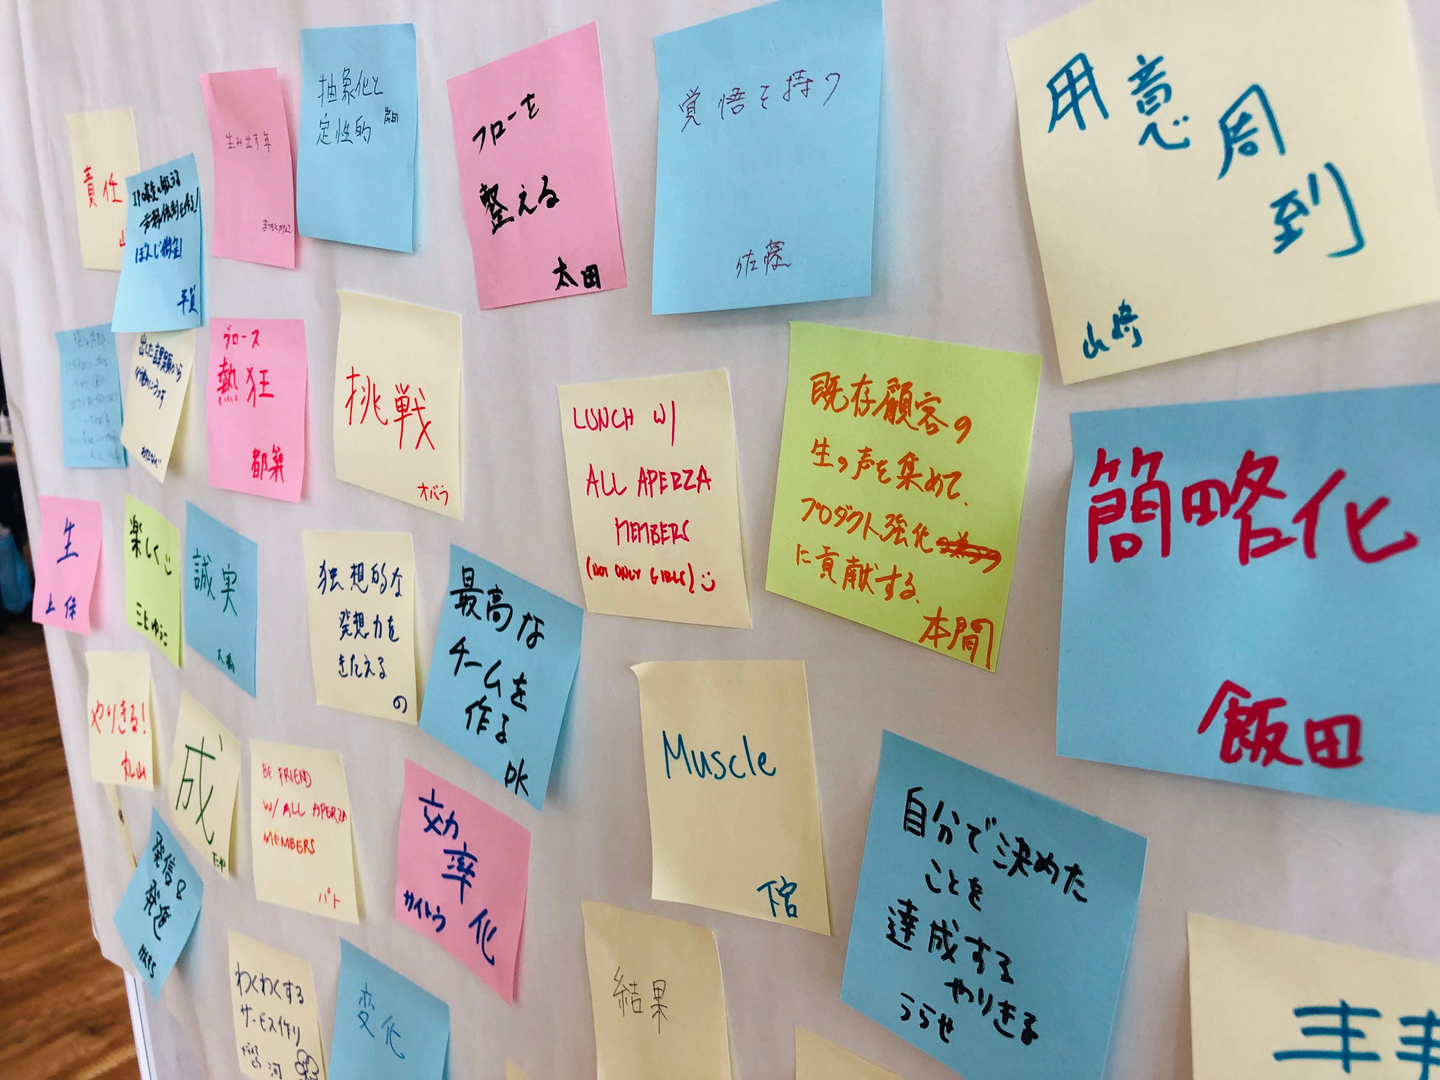 責任
生み出す年
抽象化と
定性的
フローを
整える
太田
覚悟を持つ
佐藤
用意周
到
山崎
平賀
出た課題から
グロース
熱狂
都築
挑戦
オバラ
LUNCH W/
ALL APERZA
MEMBERS
(NOT ONLY GIRLS)
既存顧客の
生の声を集めて、
プロダクト強化
に貢献する。
本間
簡略化
飯田
生
上保
楽しく
三上ゆうこ
誠実
独想的な
発想力を
きたえる
の
最高な
チームを
作る
DK
やりきる!
丸山
成
BE FRIEND
W/ ALL APERZA
MEMBERS
パト
効
率
化
サイトウ
Muscle
下宮
自分で決めた
ことを
達成する
やりきる
うらせ
発信&
発進
わくわくする
サービス作り
河
変化
結果